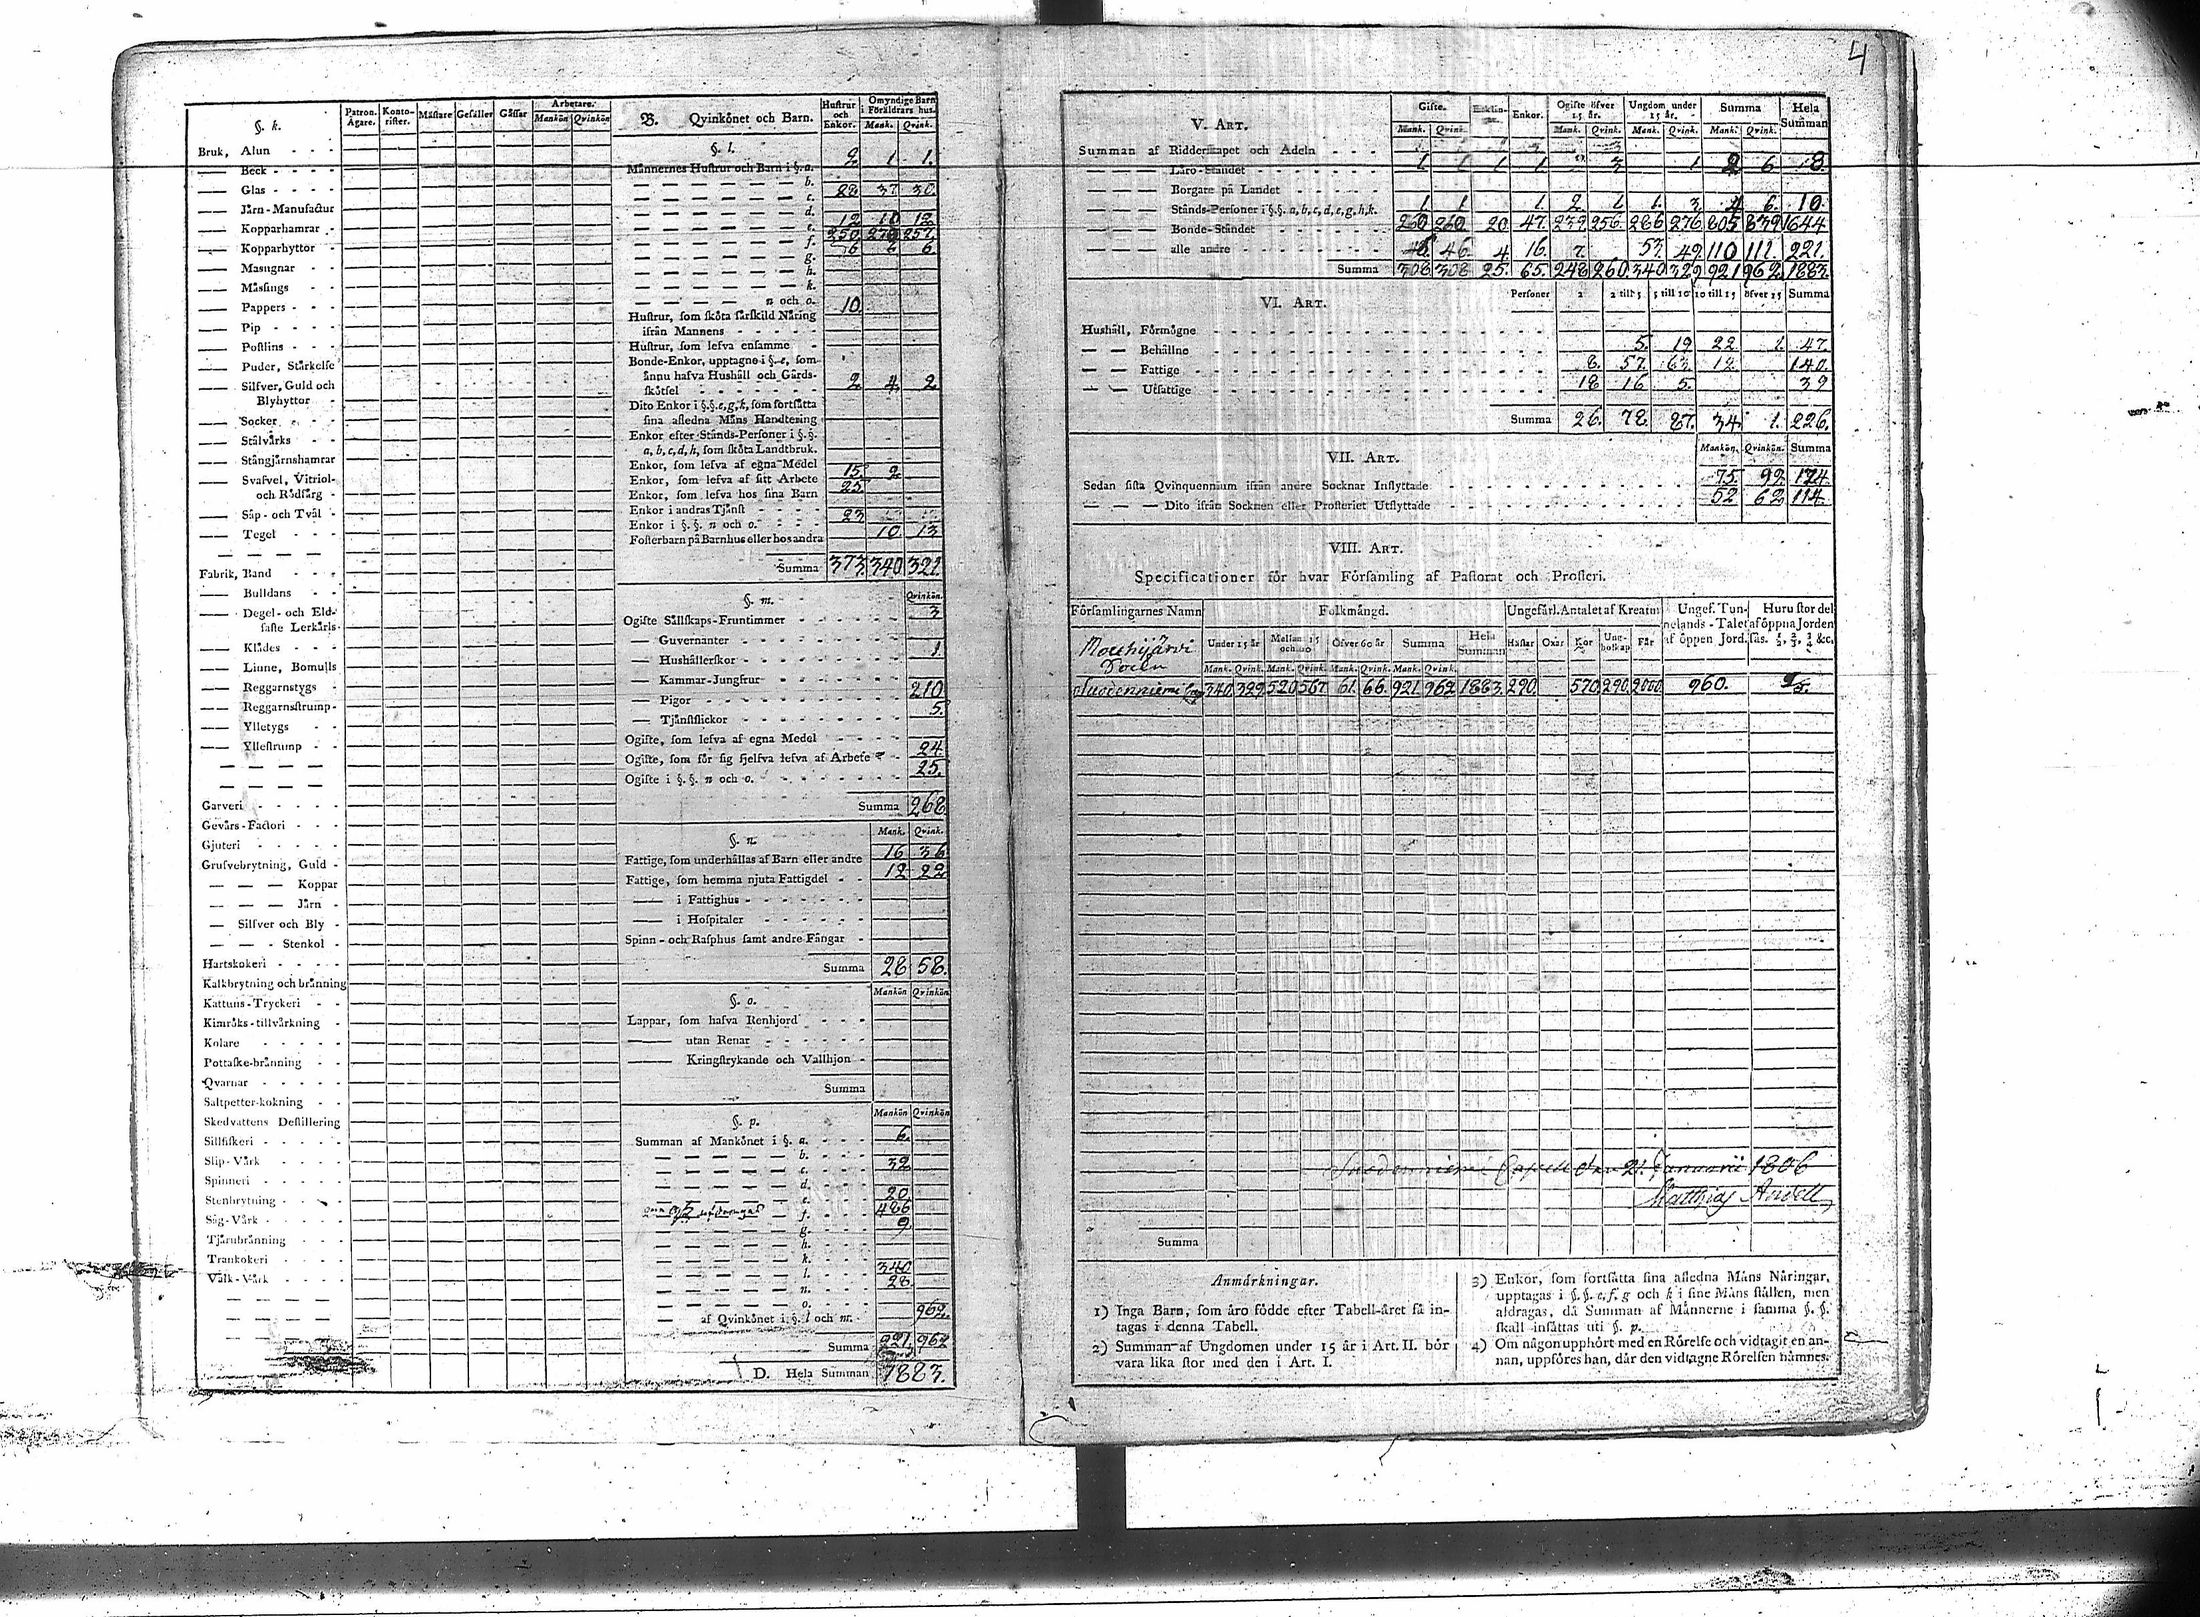 4
§. k.
Patron. Ägare. Kontorister. Mästare Gesäller Gåssar Arbetare. Mankön Qvinkön
Bruk, Alun
Beck
Glas
Järn-Manufactur
Kopparhamrar
Kopparhyttor
Masugnar
Mässings
Pappers
Pip
Postlins
Puder, Stärkelse
Silfver, Guld och
Blyhyttor
Socker
Stålvärks
Stångjärnshamrar
Svafvel, Vitriol-
och Rödfärg
Såp- och Tvål
Tegel
Fabrik, Band
Bulldans
Degel- och Eld-
faste Lerkärls
Klädes
Linne, Bomulls
Reggarnstygs
Reggarnsstrump-
Ylletygs
Yllestrump
Garveri
Gevärs-Factori
Gjuteri
Grufvebrytning, Guld
Koppar
Järn
Silfver och Bly
Stenkol
Hartskokeri
Kalkbrytning och bränning
Kattuns-Tryckeri
Kimröks-tillvärkning
Kolare
Pottaske-bränning
Qvarnar
Saltpetter-kokning
Skedvattens Destillering
Sillfiskeri
Slip-Värk
Spinneri
Stenbrytning
Såg-Värk
Tjärubränning
Trankokeri
Valk-Värk
B. Qvinkönet och Barn. Hustrur och Enkor. Omyndige Barn i Föräldrars hus. Mank. Qvink.
§. l.
Männernes Hustrur och Barn i §. a. 2 1 1.
b.
c. 28 37 30.
d.
e. 12 10 12
f. 250 276 257.
g. 6 6 6
h.
k.
n och o. 10
Hustrur, som sköta särskild Näring
ifrån Mannens
Hustrur, som lefva ensamme
Bonde-Enkor, upptagne i §. e, som
ännu hafva Hushåll och Gårds-
skötsel 2 4 2
Dito Enkor i §.§. e, g, k, som fortsätta
sina afledna Mäns Handtering
Enkor efter Stånds-Personer i §.§.
a, b, c, d, h, som sköta Landtbruk.
Enkor, som lefva af egna Medel
Enkor, som lefva af sitt Arbete 15. 2
Enkor, som lefva hos sina Barn 25.
Enkor i andras Tjänst
Enkor i §.§. n och o. 23
Fosterbarn på Barnhus eller hos andra 10 13
Summa 373. 340 322
§. m. Qvinkön.
Ogifte Sällskaps-Fruntimmer 3
Guvernanter
Hushållerskor 1.
Kammar-Jungfrur
Pigor 210
Tjänstflickor 5.
Ogifte, som lefva af egna Medel
Ogifte, som för sig sjelfva lefva af Arbete 24
Ogifte i §.§. n och o. 25.
Summa 268
§. n. Mank. Qvink.
Fattige, som underhållas af Barn eller andre 16 36
Fattige, som hemma njuta Fattigdel 12 22
i Fattighus
i Hospitaler
Spinn- och Rasphus samt andre Fångar
Summa 28 58.
§. o. Mankön Qvinkön
Lappar, som hafva Renhjord
utan Renar
Kringstrykande och Vallhjon
Summa
§. p. Mankön Qvinkön
Summan af Mankönet i §. a. 6.
b.
c. 32
d.
e. 20
f. 486
g. 9
h.
k.
l. 340
n. 28
o.
af Qvinkönet i §. l och m. 962.
Summa 921 962
D. Hela Summan 1883.
V. Art. Gifte. Mank. Qvink. Enklingar. Enkor. Ogifte öfver 15 år. Mank. Qvink. Ungdom under 15 år. Mank. Qvink. Summa Mank. Qvink. Hela Summan
Summan af Ridderskapet och Adeln
Läro-Ståndet 1 1 1 1 3 1 2 6 8.
Borgare på Landet
Stånds-Personer i §.§. a, b, c, d, e, g, h, k. 1. 1. 1. 2 1 1. 3 4 6. 10.
Bonde-Ståndet 260 260 20 47. 239 256. 286 276 805 839 1644
alle andre 46. 46. 4 16. 7. 53. 49. 110 111. 221.
Summa 308 308 25. 65. 248 260. 340 329 921 962. 1883.
VI. Art. Personer 2 2 till 5 5 till 10 10 till 15 öfver 15 Summa
Hushåll, Förmögne
Behållne 5. 19 22. 1. 47.
Fattige 8. 57. 63. 12. 140.
Utfattige 18 16 5. 39
Summa 26. 78. 87. 34. 1. 226.
VII. Art. Mankön. Qvinkön. Summa
Sedan sista Qvinquennium ifrån andre Socknar Inflyttade 75. 99. 174.
Dito ifrån Socknen eller Prosteriet Utflyttade 52 62 114.
VIII. Art.
Specificationer för hvar Församling af Pastorat och Prosteri.
Församlingarnes Namn Folkmängd. Ungefärl. Antalet af Kreatur Ungef. Tunnelands-Talet af öppen Jord. Huru stor del af öppna Jorden sås. ½, ⅔, ¾ &c.
Under 15 år Mellan 15 och 60 Öfver 60 år Summa Hela Summan Hästar Oxar Kor Ungboskap Får
Mank. Qvink. Mank. Qvink. Mank. Qvink. Mank. Qvink.
Mouhijärvi
Socken
Suodenniemi 340 329 520 567 61. 66. 921. 962 1883. 290. 570 290. 2000. 960.
Suodenniemi Capell den 21. Januarii 1806
Matthias
Summa
Anmärkningar.
1) Inga Barn, som äro födde efter Tabell-året få in-
tagas i denna Tabell.
2) Summan af Ungdomen under 15 år i Art. II. bör
vara lika stor med den i Art. I.
3) Enkor, som fortsätta sina afledna Mäns Näringar,
upptagas i §.§. e, f, g och k i sine Mäns ställen, men
afdragas, då Summan af Männerne i samma §.§.
skall insättas uti §. p.
4) Om någon upphört med en Rörelse och vidtagit en an-
nan, uppföres han, där den vidtagne Rörelsen nämnes.